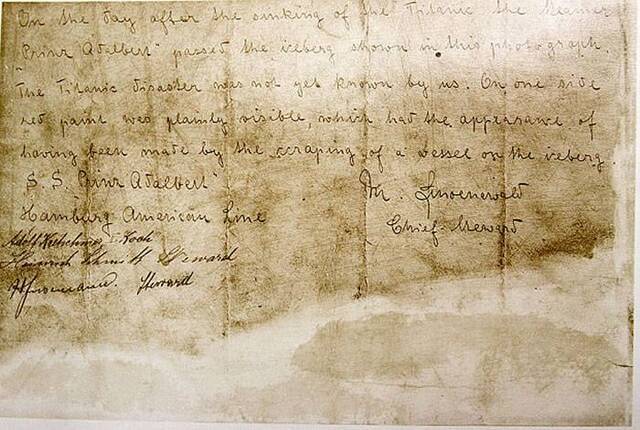 On the day after the sinking of the Titanic the steamer
"Prinz Adalbert" passed the iceberg shown in this photograph.
The Titanic disaster was not yet known by us. On one side
red paint was plainly visible, which had the appearawe of
having been made by the scraping of a vessel on the iceberg.
S. S. Prinz Adalbert"
M. Linoenewald
Hamburg American Line
Chief Steward
Adolf I. Koch
Heinrich Steward
Steward